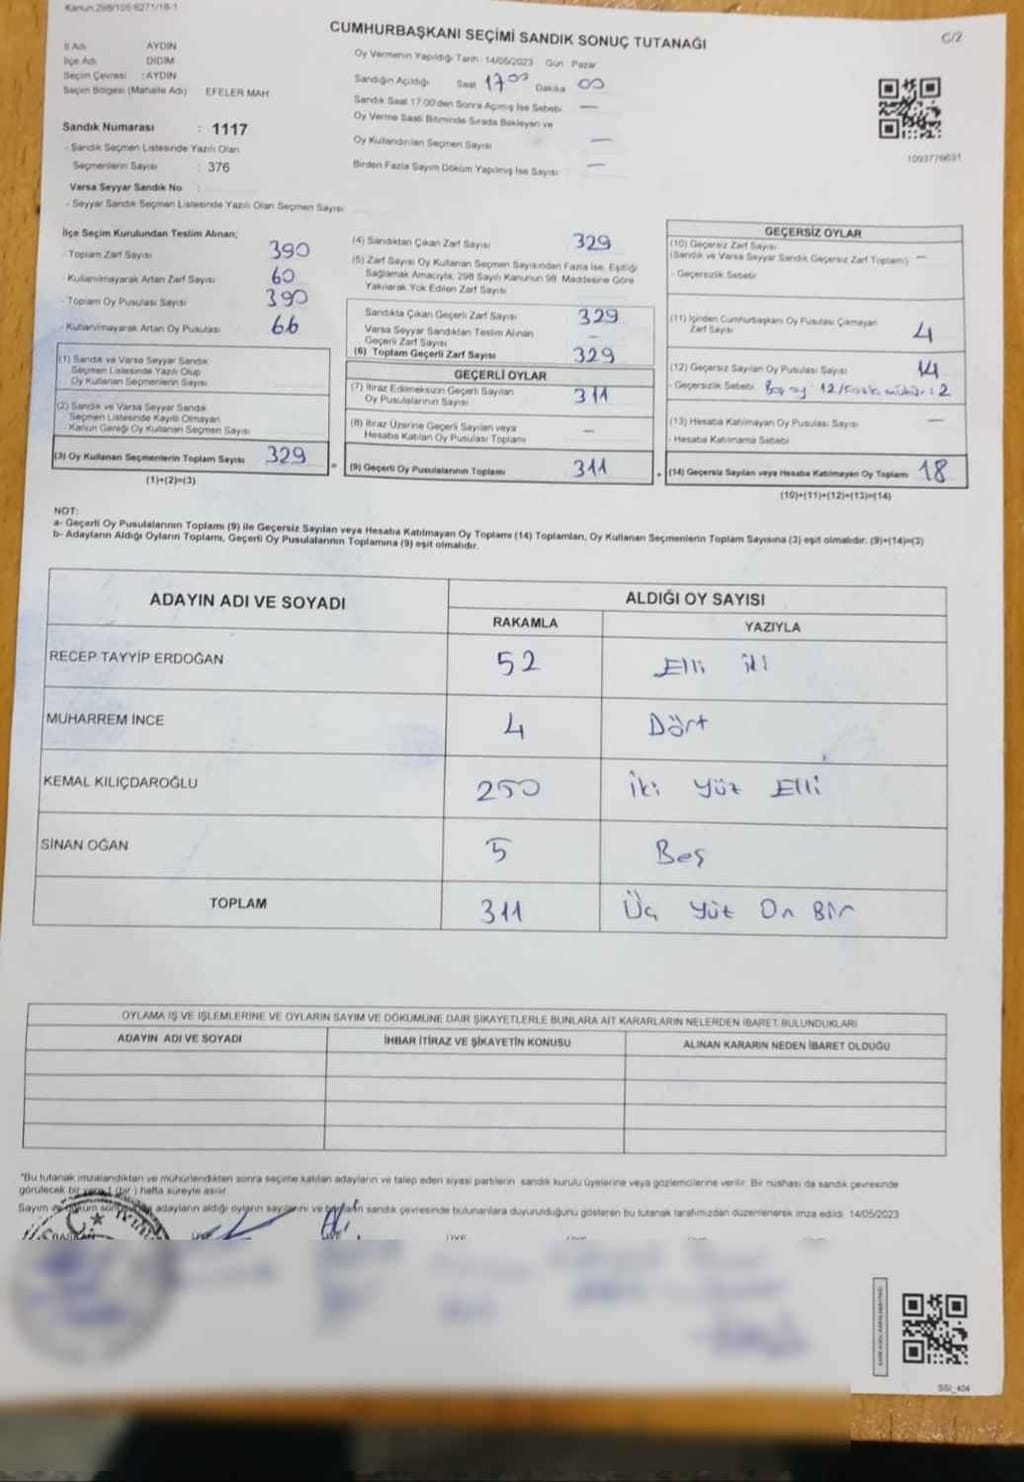 Kanun 298/105-6271/18-1
CUMHURBAŞKANI SEÇİMİ SANDIK SONUÇ TUTANAĞI
C/2
İl Adı AYDIN
İlçe Adı DİDİM
Seçim Çevresi : AYDIN
Seçim Bölgesi (Mahalle Adı) EFELER MAH
Sandık Numarası : 1117
- Sandık Seçmen Listesinde Yazılı Olan
Seçmenlerin Sayısı : 376
Varsa Seyyar Sandık No :
- Seyyar Sandık Seçmen Listesinde Yazılı Olan Seçmen Sayısı
Oy Vermenin Yapıldığı Tarih: 14/05/2023 Gün : Pazar
Sandığın Açıldığı Saat 17 00 Dakika 00
Sandık Saat 17.00'den Sonra Açılmış İse Sebebi —
Oy Verme Saati Bitiminde Sırada Bekleyen ve
Oy Kullandırılan Seçmen Sayısı —
Birden Fazla Sayım Döküm Yapılmış İse Sayısı —
1093776631
İlçe Seçim Kurulundan Teslim Alınan;
- Toplam Zarf Sayısı 390
- Kullanılmayarak Artan Zarf Sayısı 60
- Toplam Oy Pusulası Sayısı 390
- Kullanılmayarak Artan Oy Pusulası 66
(1) Sandık ve Varsa Seyyar Sandık
Seçmen Listesinde Yazılı Olup
Oy Kullanan Seçmenlerin Sayısı
(2) Sandık ve Varsa Seyyar Sandık
Seçmen Listesinde Kayıtlı Olmayan
Kanun Gereği Oy Kullanan Seçmen Sayısı
(3) Oy Kullanan Seçmenlerin Toplam Sayısı 329
(1)+(2)=(3)
(4) Sandıktan Çıkan Zarf Sayısı 329
(5) Zarf Sayısı Oy Kullanan Seçmen Sayısından Fazla İse, Eşitliği
Sağlamak Amacıyla, 298 Sayılı Kanunun 98. Maddesine Göre
Yakılarak Yok Edilen Zarf Sayısı
Sandıkta Çıkan Geçerli Zarf Sayısı 329
Varsa Seyyar Sandıktan Teslim Alınan
Geçerli Zarf Sayısı —
(6) Toplam Geçerli Zarf Sayısı 329
GEÇERLİ OYLAR
(7) İtiraz Edilmeksizin Geçerli Sayılan
Oy Pusulalarının Sayısı 311
(8) İtiraz Üzerine Geçerli Sayılan veya
Hesaba Katılan Oy Pusulası Toplamı —
= (9) Geçerli Oy Pusulalarının Toplamı 311
GEÇERSİZ OYLAR
(10) Geçersiz Zarf Sayısı
(Sandık ve Varsa Seyyar Sandık Geçersiz Zarf Toplamı) —
- Geçersizlik Sebebi
(11) İçinden Cumhurbaşkanı Oy Pusulası Çıkmayan
Zarf Sayısı 4
(12) Geçersiz Sayılan Oy Pusulası Sayısı 14
- Geçersizlik Sebebi Boş oy 12/Fazla mühür: 2
(13) Hesaba Katılmayan Oy Pusulası Sayısı —
- Hesaba Katılmama Sebebi
+ (14) Geçersiz Sayılan veya Hesaba Katılmayan Oy Toplamı 18
(10)+(11)+(12)+(13)=(14)
NOT:
a- Geçerli Oy Pusulalarının Toplamı (9) ile Geçersiz Sayılan veya Hesaba Katılmayan Oy Toplamı (14) Toplamları, Oy Kullanan Seçmenlerin Toplam Sayısına (3) eşit olmalıdır. (9)+(14)=(3)
b- Adayların Aldığı Oyların Toplamı, Geçerli Oy Pusulalarının Toplamına (9) eşit olmalıdır.
ADAYIN ADI VE SOYADI ALDIĞI OY SAYISI
RAKAMLA YAZIYLA
RECEP TAYYİP ERDOĞAN 52 Elli iki
MUHARREM İNCE 4 Dört
KEMAL KILIÇDAROĞLU 250 İki Yüz Elli
SİNAN OĞAN 5 Beş
TOPLAM 311 Üç Yüz On Bir
OYLAMA İŞ VE İŞLEMLERİNE VE OYLARIN SAYIM VE DÖKÜMÜNE DAİR ŞİKAYETLERLE BUNLARA AİT KARARLARIN NELERDEN İBARET BULUNDUKLARI
ADAYIN ADI VE SOYADI İHBAR İTİRAZ VE ŞİKAYETİN KONUSU ALINAN KARARIN NEDEN İBARET OLDUĞU
*Bu tutanak imzalandıktan ve mühürlendikten sonra seçime katılan adayların ve talep eden siyasi partilerin sandık kurulu üyelerine veya gözlemcilerine verilir. Bir nüshası da sandık çevresinde
görülecek bir yere 1 (bir) hafta süreyle asılır.
Sayım ve döküm sonucunda adayların aldığı oyların sayılarını ve bunların sandık çevresinde bulunanlara duyurulduğunu gösteren bu tutanak tarafımızdan düzenlenerek imza edildi. 14/05/2023
SSI_404